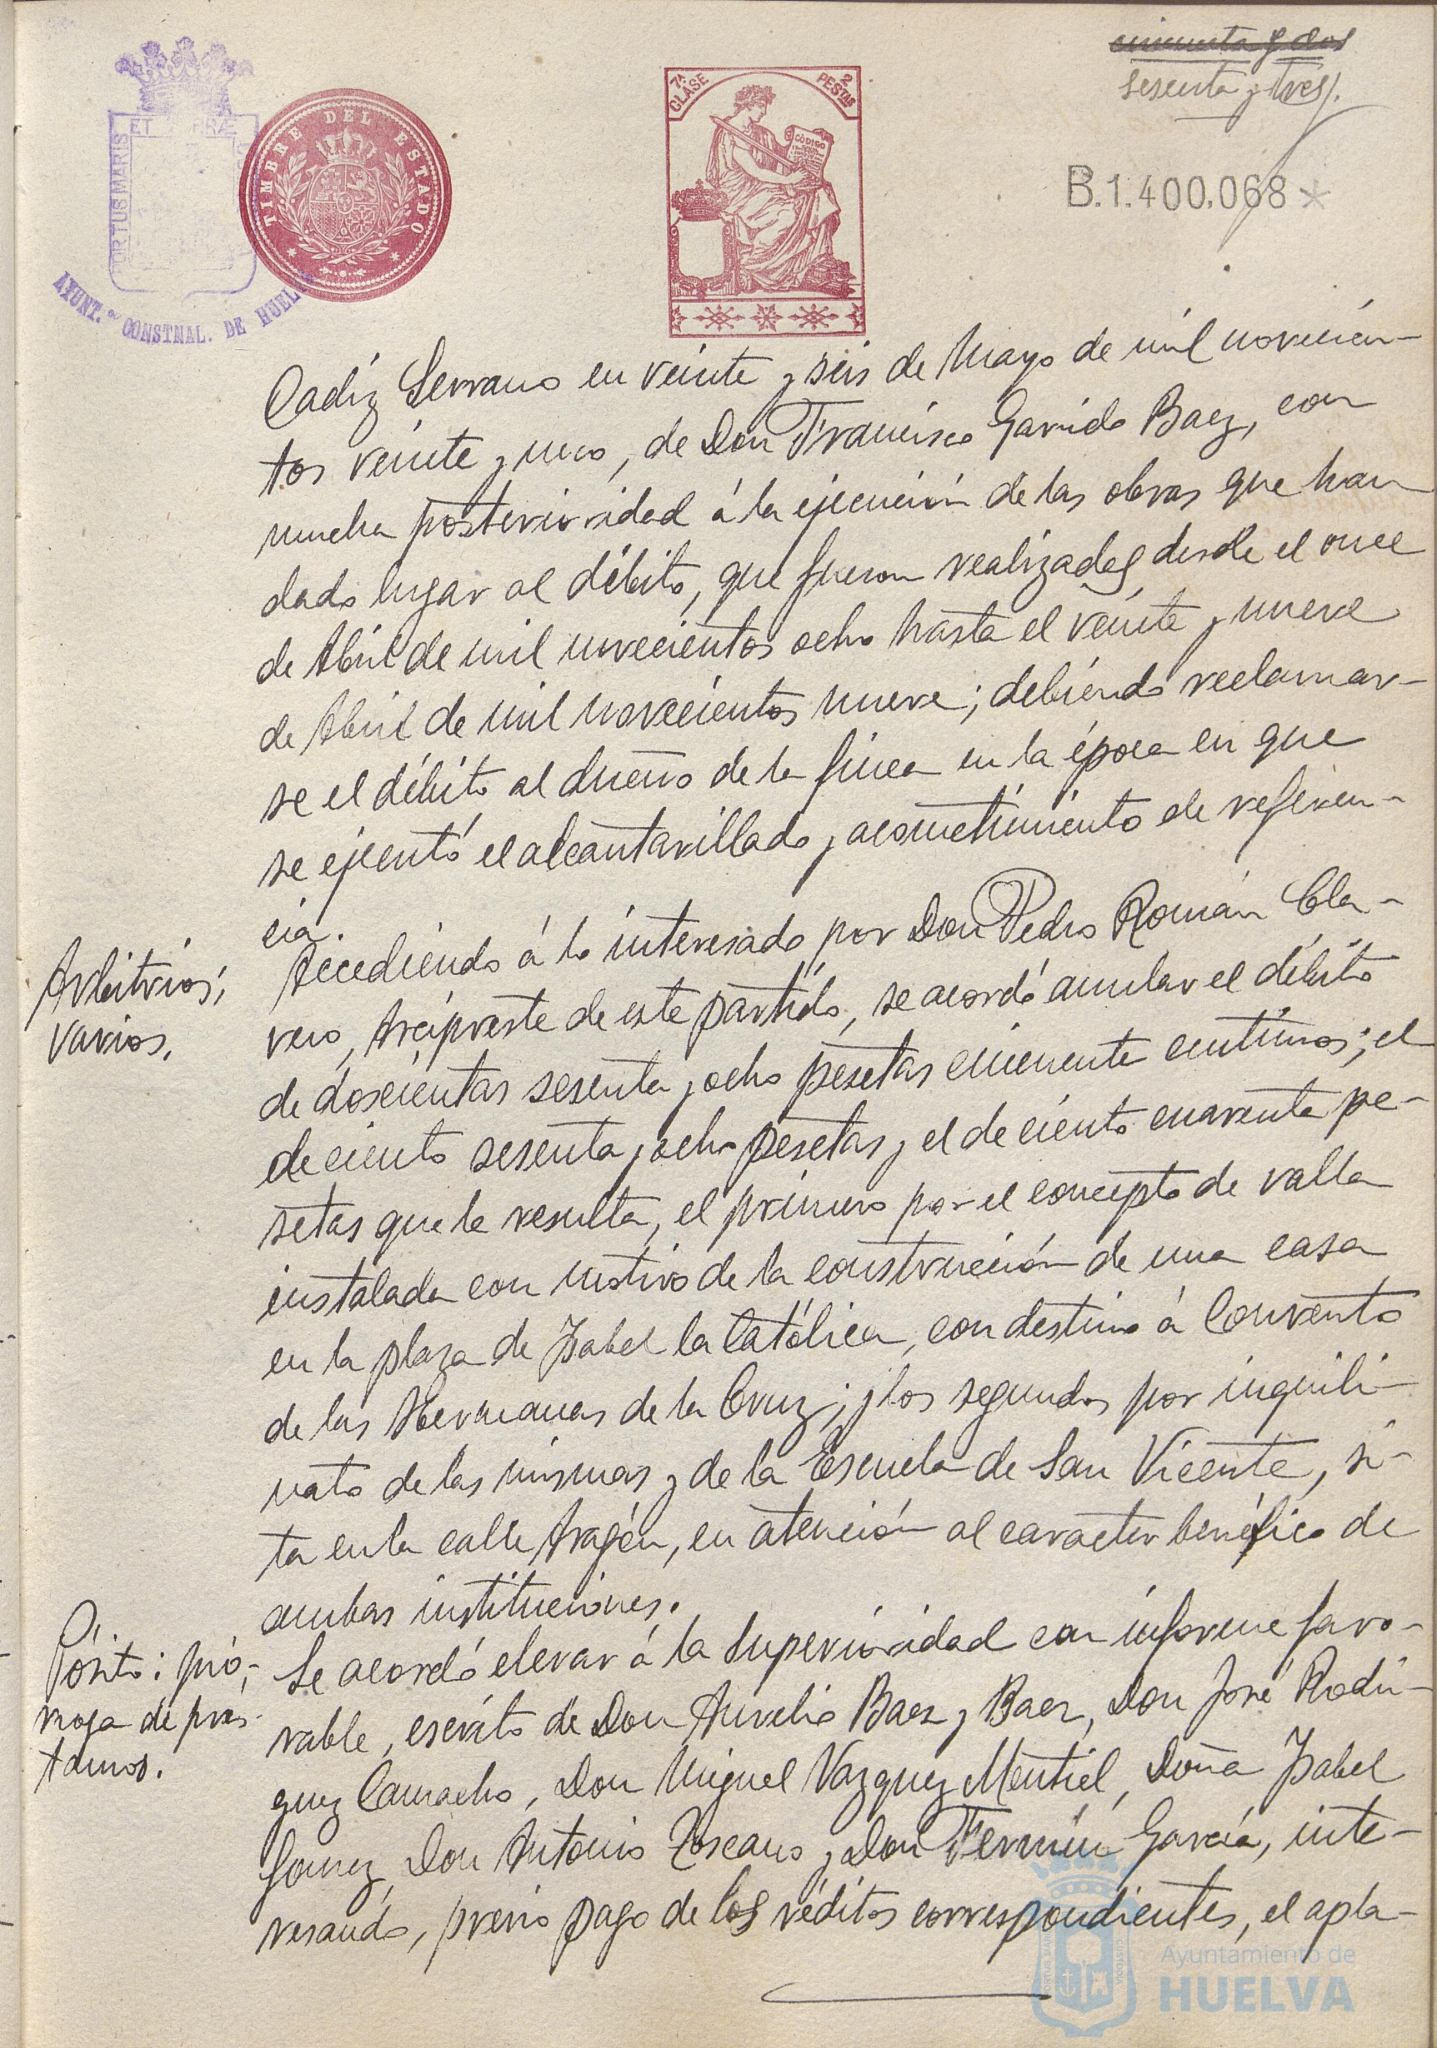 cincuenta y dos
sesenta y tres
7ª CLASE
2 PESTAS
CÓDIGO
TIMBRE DEL ESTADO
PORTUS MARIS ET TERRÆ
AYUNT.º CONSTNAL. DE HUELVA
B.1.400.068
Cadiz Serrano en veinte y seis de Mayo de mil novecien-
tos veinte y uno, de Don Francisco Garrido Baez, con
mucha posterioridad á la ejecución de las obras que han
dado lugar al débito, que fueron realizadas desde el once
de Abril de mil novecientos ocho hasta el veinte y nueve
de Abril de mil novecientos nueve; debiendo reclamar-
se el débito al dueño de la finca en la época en que
se ejecutó el alcantarillado y acometimiento de referen-
cia.
Arbitrios;
varios.
Accediendo á lo interesado por Don Pedro Román Cla-
vero, Arcipreste de este partido, se acordó anular el débito
de doscientas sesenta y ocho pesetas cincuenta centimos; el
de ciento sesenta y ocho pesetas y el de ciento cuarenta pe-
setas que le resulta, el primero por el concepto de valla
instalada con motivo de la construcción de una casa
en la plaza de Isabel la Católica, con destino á Convento
de las Hermanas de la Cruz; y los segundos por inquili-
nato de las mismas y de la Escuela de San Vicente, si-
ta en la calle Aragón, en atención al caracter benéfico de
ambas instituciones.
Pósito: pró-
rroga de prés-
tamos.
Se acordó elevar á la Superioridad con informe favo-
rable, escrito de Don Aurelio Baez y Baez, Don José Rodri-
guez Camacho, Don Miguel Vazquez Montiel, Doña Isabel
Gomez, Don Antonio Toscano y Don Fermín García, inte-
resando, previo pago de los réditos correspondientes, el apla-
Ayuntamiento de
HUELVA